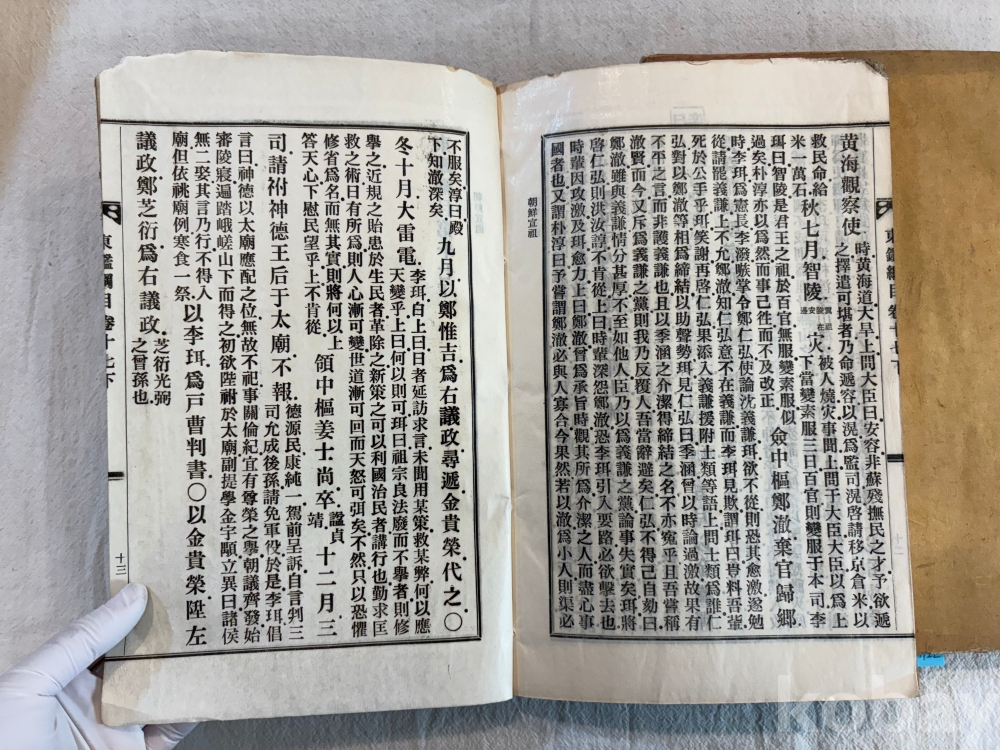 東鑑綱目卷十七下
黃海觀察使
時黃海道大旱上問大臣曰安容非蘇殘撫民之才予欲遞
之擇遣可堪者乃命遞容以滉爲監司滉啓請移京倉米以
救民命給
米一萬石
秋七月智陵
翼祖
在安邊
火
被人燒灾事聞上問于大臣大臣以爲上
下當變素服三日百官則變服于本司李
珥曰智陵是君王之祖於百官無服變素服似
過矣朴淳亦以爲然而事已徃而不及改正
僉中樞鄭澈棄官歸鄉
時李珥爲憲長李潑嗾掌令鄭仁弘使論沈義謙珥欲不從則恐其憿激遂勉
從請罷義謙上不允鄭澈知仁弘意不在義謙而李珥見欺謂珥曰豈料吾輩
死於公手乎珥笑謝再啓仁弘果添入義謙援附士類等語上問士類爲誰仁
弘對以鄭澈等相爲締結以助聲勢珥見仁弘曰季涵曾以時論過激故果有
不平之言而非護義謙也且以季涵之介潔得締結之名不亦寃乎且吾嘗稱
澈賢而今又斥爲義謙之黨則我乃反覆人吾當辭避矣仁弘不得已自劾曰
鄭澈雖與義謙情分甚厚不至如他人臣乃以爲義謙之黨論事失實矣珥將
啓仁弘則洪汝諄不肯從上曰時輩深怨鄭澈恐李珥引入要路必欲擊去也
時輩因攻澈及珥愈力上曰鄭澈曾爲承旨時觀其所爲介潔之人而盡心事
國者也又謂朴淳曰予嘗謂鄭澈必與人寡合今果然若以澈爲小人則渠必
朝鮮宣祖
不服矣淳曰殿
下知澈深矣
九月以鄭惟吉爲右議政尋遞金貴榮代之〇
冬十月大雷電
李珥白上曰日者延訪求言未聞用某策救某弊何以應
天變乎上曰何以則可珥曰祖宗良法廢而不擧者則修
擧之近規之貽患於生民者革除之新策之可以利國治民者講行也勤求匡
救之術日有所爲則人心漸可變世道漸可回而天怒可弭矣不然只以恐懼
修省爲名而無其實則將何以上
答天心下慰民望乎上不肯從
領中樞姜士尙卒
謚貞
靖
十二月三
司請祔神德王后于太廟不報
德源民康純一駕前呈訴自言判三
司允成後孫請免軍役於是李珥倡
言曰神德以太廟應配之位無故不祀事關倫紀宜有尊榮之擧朝議齊發始
審陵寢遍踏峨嵯山下而得之初欲陞祔於太廟副提學金宇顒立異曰諸侯
無二娶其言乃行不得入
廟但依祧廟例寒食一祭
以李珥爲戶曹判書〇以金貴榮陞左
議政鄭芝衍爲右議政
芝衍光弼
之曾孫也
東鑑綱目卷十七下
十三